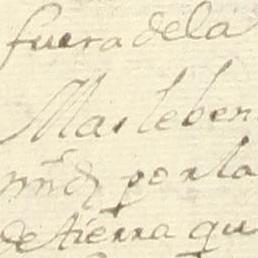 fuera dela
Mas leben
por la
de tierra qu